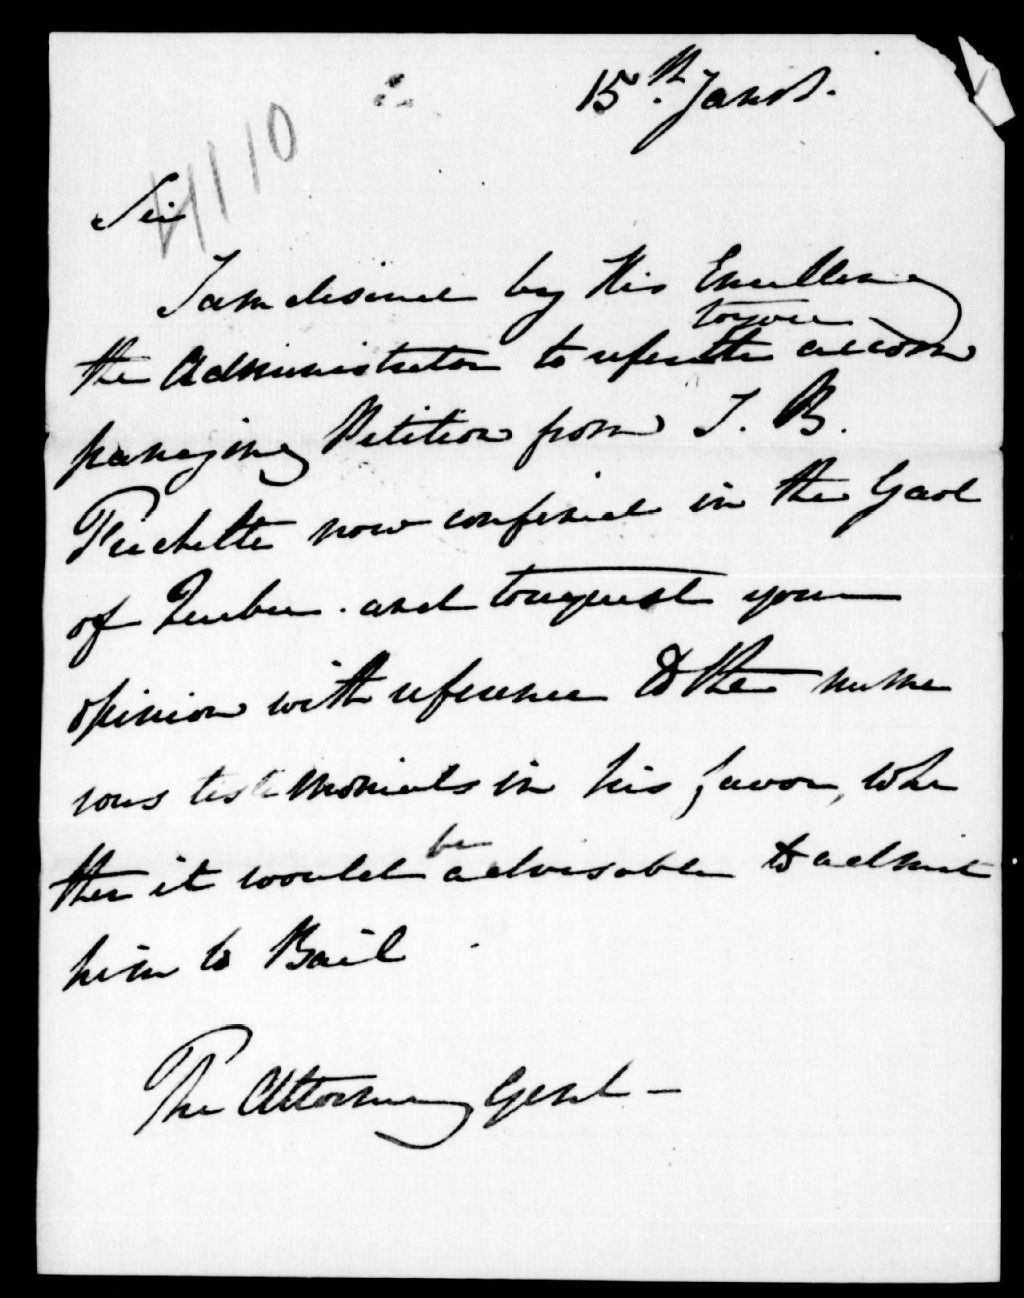 15th. Jany.
4110
Sir
I am desired by His Excellency
to you
the Administrator to refer the accom
panying Petition from J. B.
Frechette now confined in the Gaol
of Quebec. and to request your
opinion with reference to the nume
rous testimonials in his favor, whe
be
ther it would advisable to admit
him to Bail
The Attorney Genl -